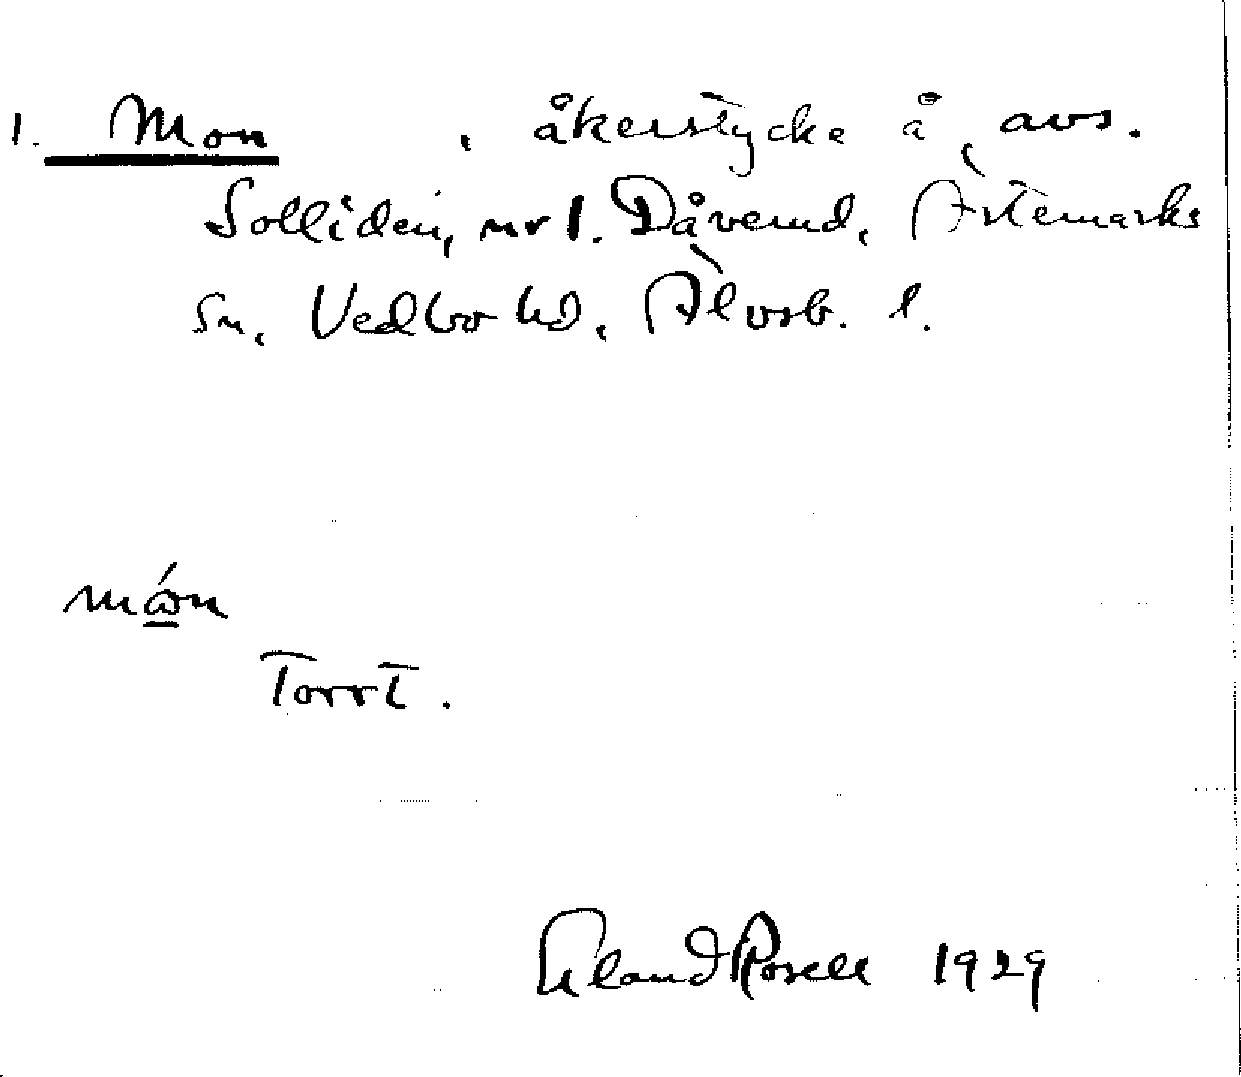 1. Mon , åkerstycke å avs.
Solliden, nr 1. Dåverud, Ärtemarks
sn, Vedbo hd, Älvsb. l.
Torrt.
Erland Rosell 1929